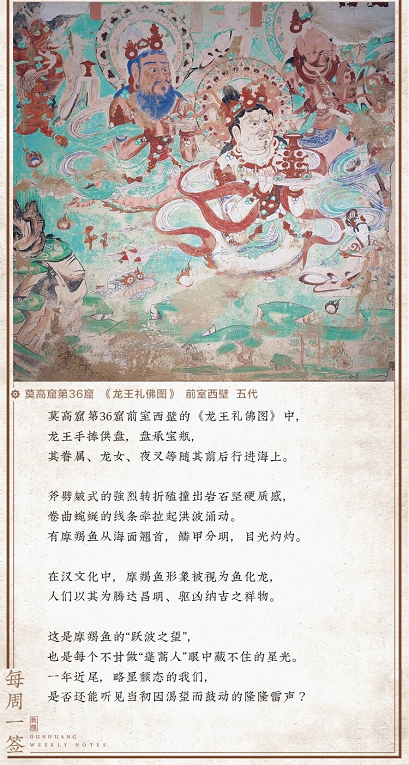 莫高窟第36窟 《龙王礼佛图》 前室西壁 五代
莫高窟第36窟前室西壁的《龙王礼佛图》中，
龙王手捧供盘，盘承宝瓶，
其眷属、龙女、夜叉等随其前后行进海上。
斧劈皴式的强烈转折磕撞出岩石坚硬质感，
卷曲蜿蜒的线条牵拉起洪波涌动。
有摩羯鱼从海面翘首，鳞甲分明，目光灼灼。
在汉文化中，摩羯鱼形象被视为鱼化龙，
人们以其为腾达昌明、驱凶纳吉之祥物。
这是摩羯鱼的“跃波之望”，
也是每个不甘做“蓬蒿人”眼中藏不住的星光。
一年近尾，略显颓态的我们，
是否还能听见当初因渴望而鼓动的隆隆雷声？
每周一签
敦煌
DUNHUANG
WEEKLY NOTES